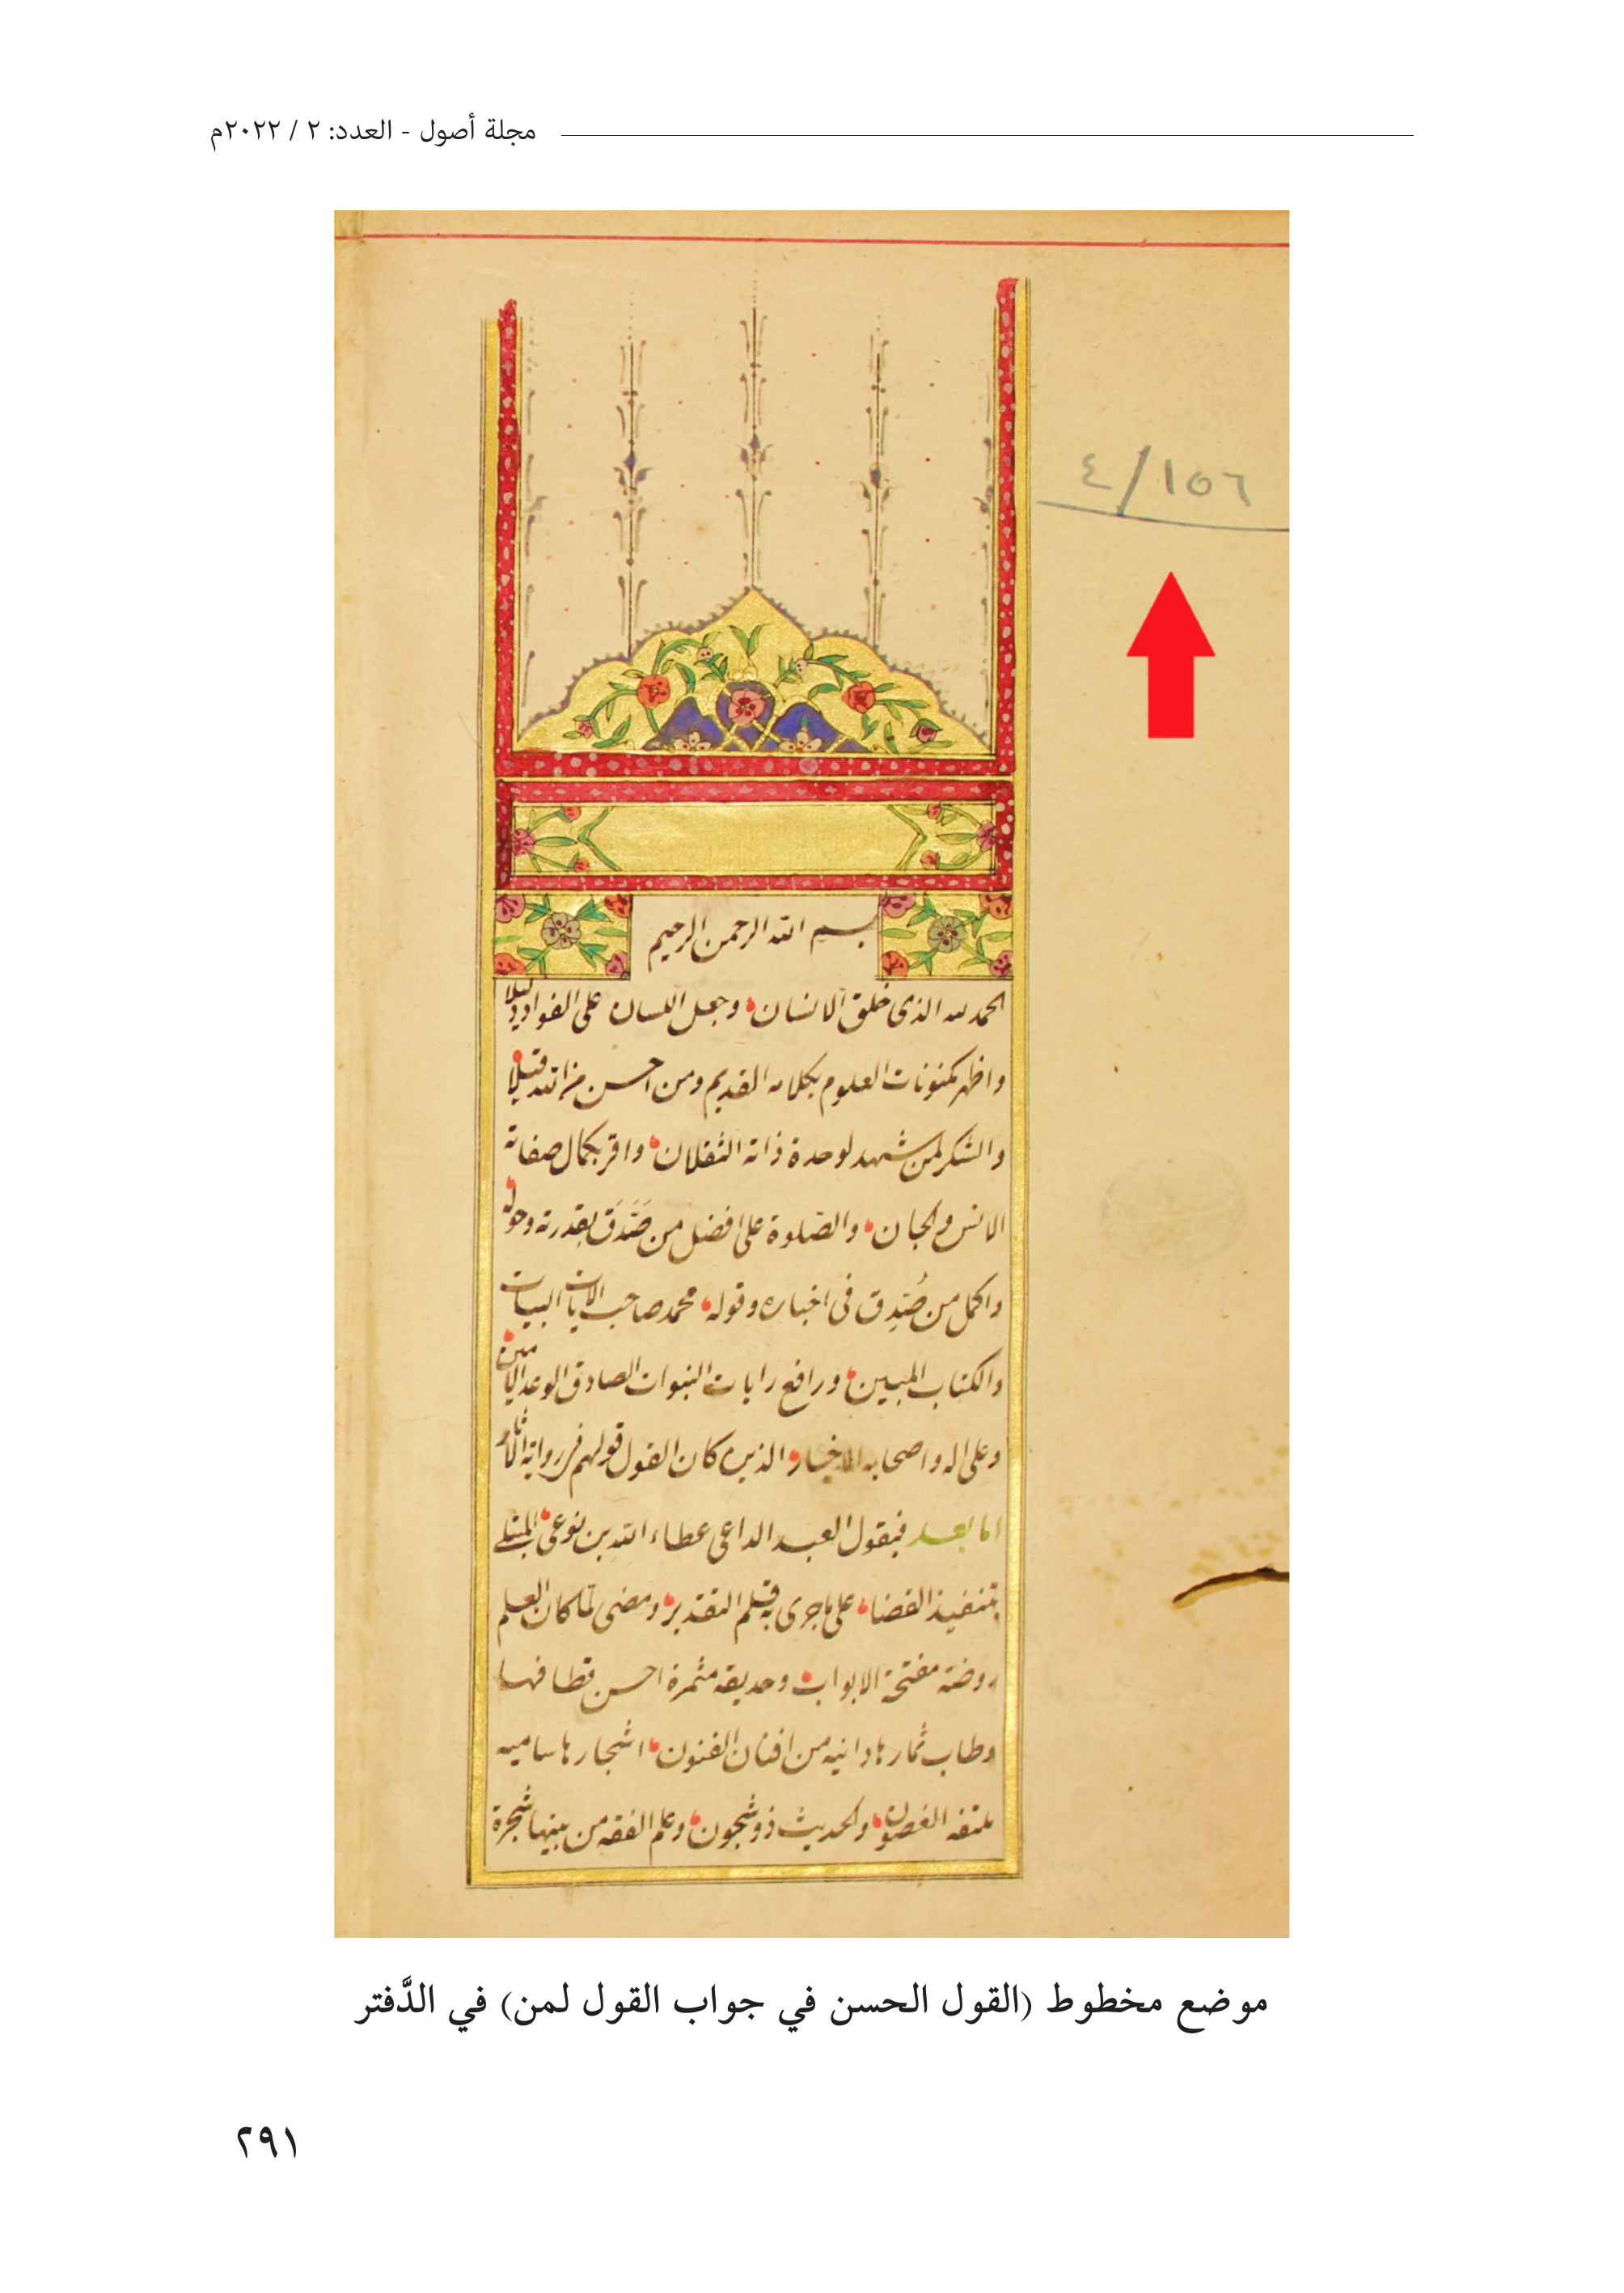 مجلة أصول - العدد: ٢ / ٢٠٢٢م
٤/١٥٦
بسم الله الرحمن الرحيم
الحمد لله الذى خلق الانسان وجعل اللسان على الفواد دليلا
واظهر مكنونات العلوم بكلامه القديم ومن احسن من الله قيلا
والشكر لمن شهد لوحدة ذاته الثقلان واقر بكمال صفاته
الانس والجان والصّلوة على افضل من صَدَّقَ بقدرته وحوله
واكمل من صُدِّق فى اخباره وقوله محمد صاحب الايات البينات
والكتاب المبين ورافع رايات النبوات الصادق الوعد الامين
وعلى اله واصحابه الاخيار الذين كان القول قولهم فى رواية الآثار
اما بعد فيقول العبد الداعى عطاء الله بن نوعى المبتلى
بتنفيذ القضاء على ما جرى به قلم التقدير ومضى لما كان العلم
روضة مفتحة الابواب وحديقة مثمرة احسن قطافها
وطاب ثمارها دانيه من افنان الفنون اشجارها ساميه
ملتفه الغصون والحديث ذو شجون وعلم الفقه من بينها شجرة
موضع مخطوط (القول الحسن في جواب القول لمن) في الدَّفتر
٢٩١